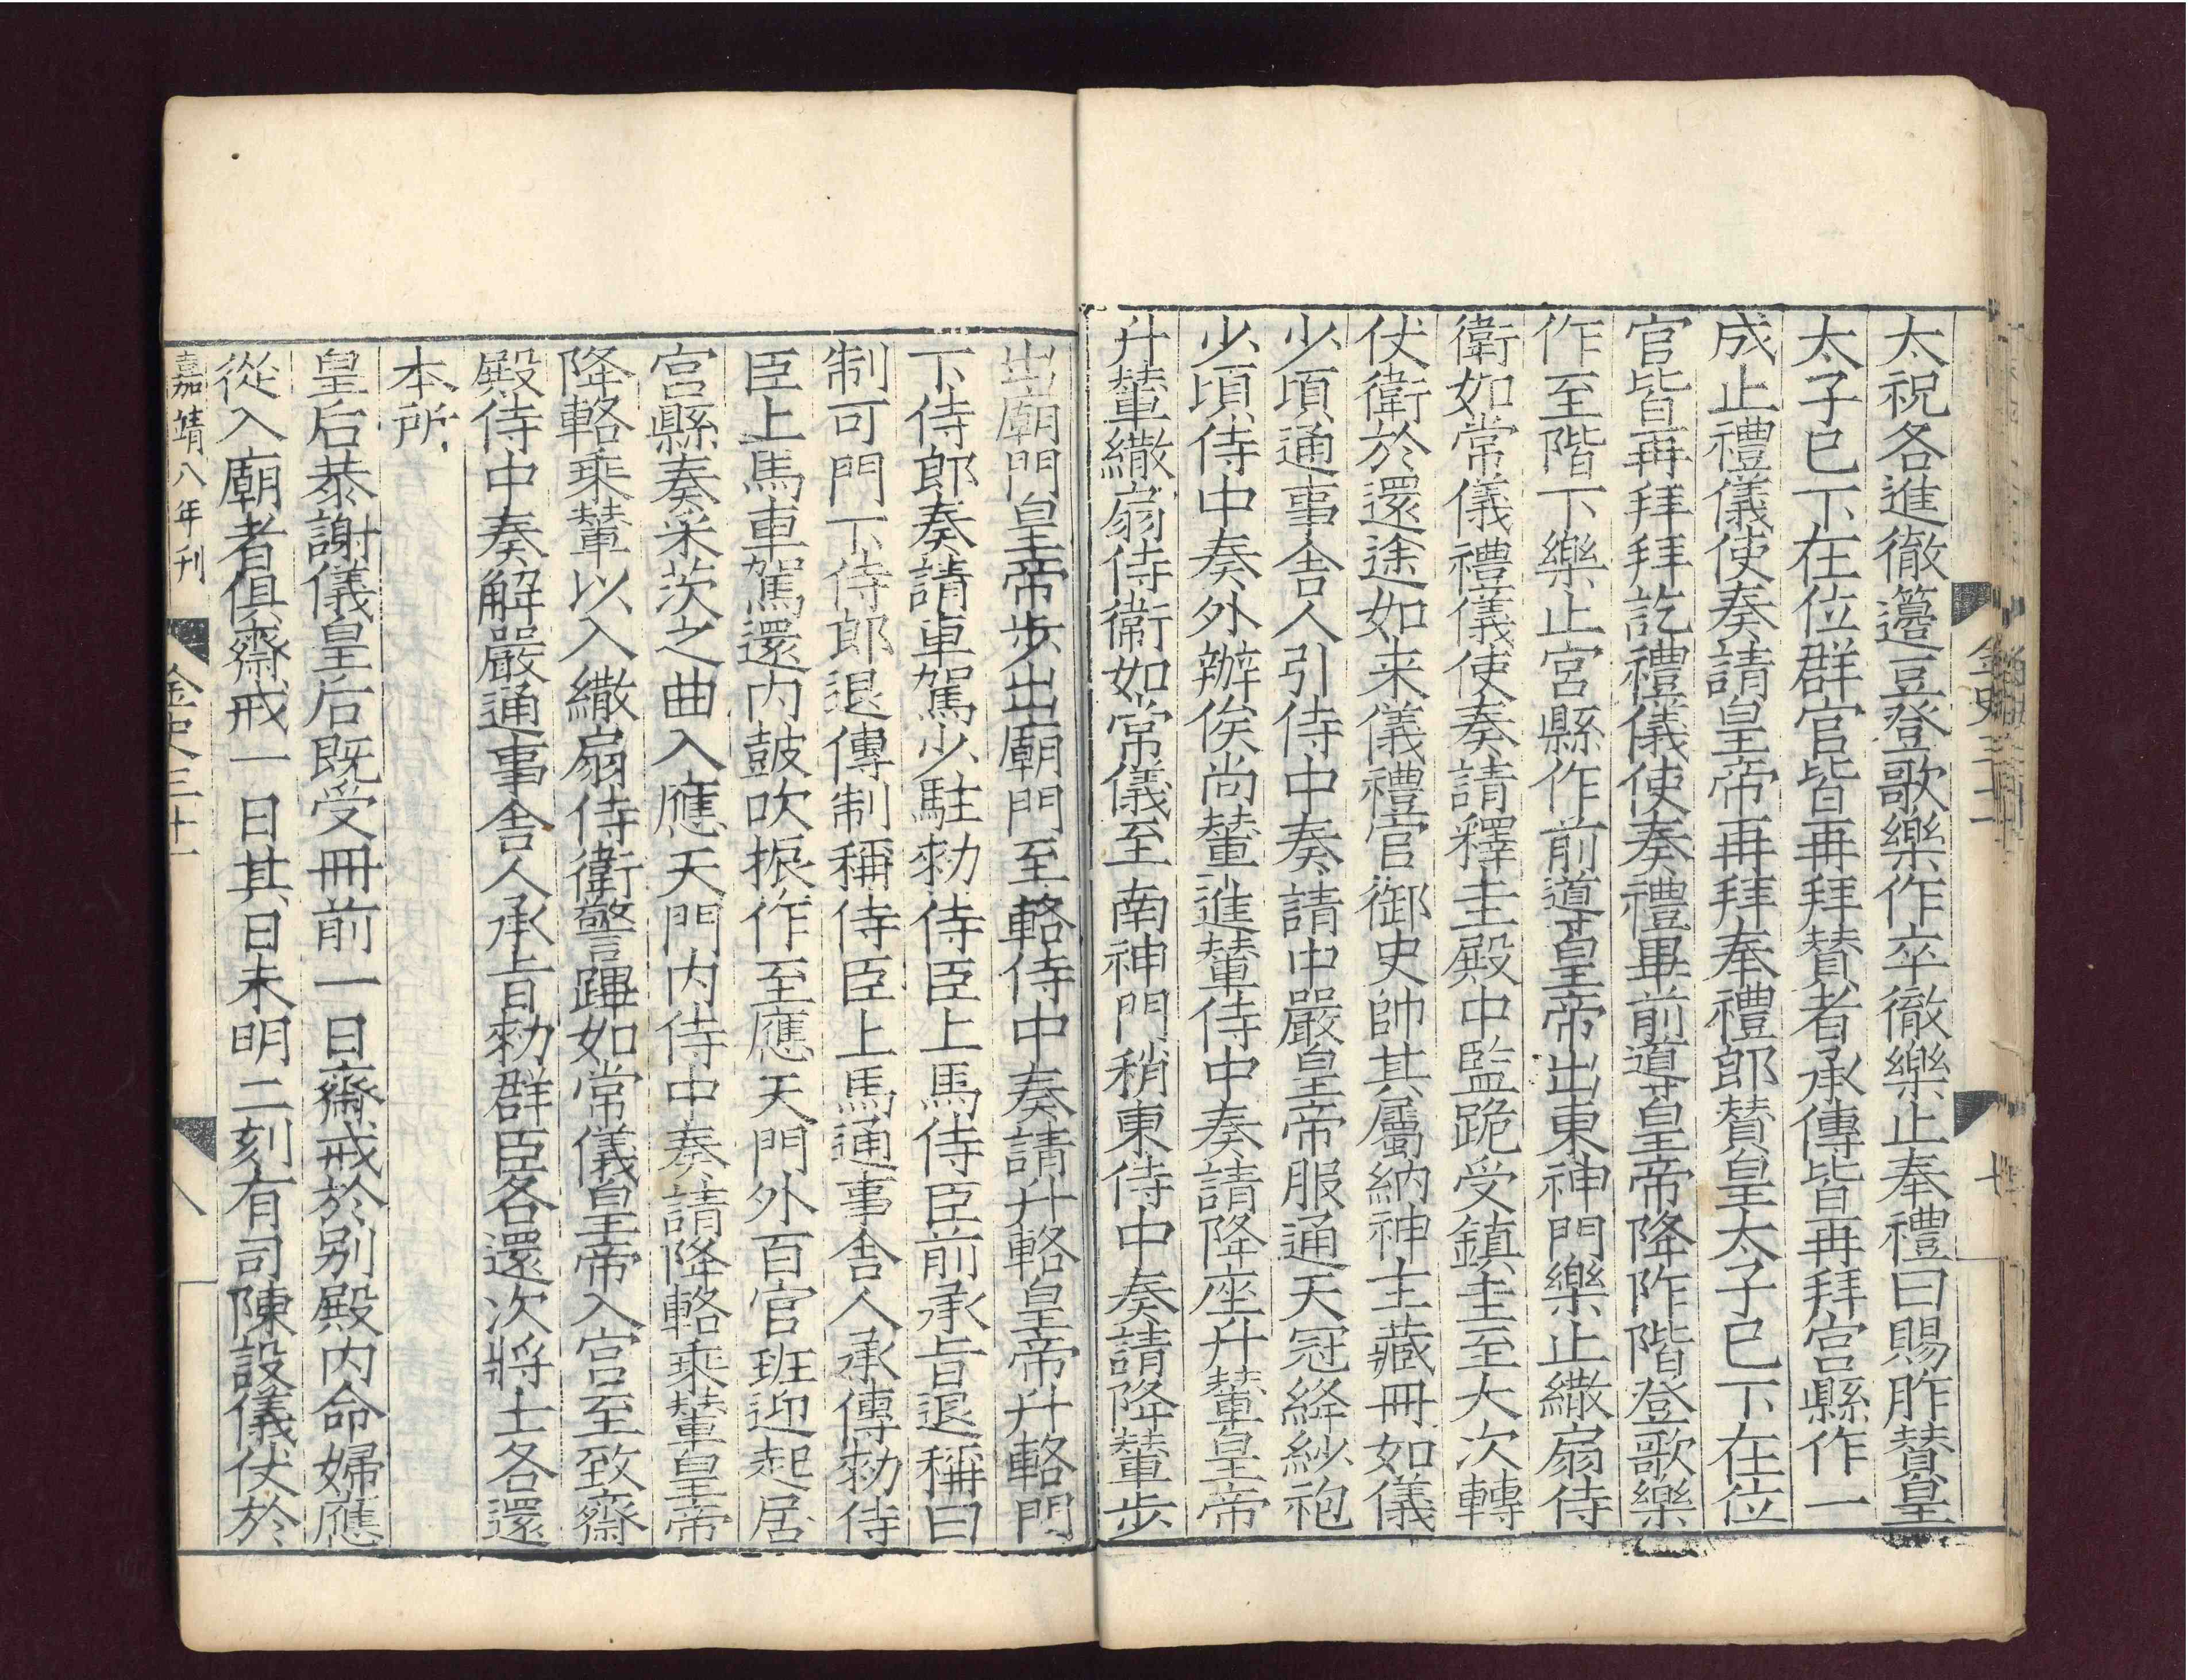 太祝各進徹籩豆登歌樂作卒徹樂止奉禮曰賜胙賛皇
太子巳下在位群官皆再拜賛者承傳皆再拜宫縣作一
成止禮儀使奏請皇帝再拜奉禮郎賛皇太子巳下在位
官皆再拜拜訖禮儀使奏禮畢前導皇帝降阼階登歌樂
作至階下樂止宫縣作前導皇帝出東神門樂止繖扇侍
衛如常儀禮儀使奏請釋圭殿中監跪受鎮圭至大次轉
仗衛於還途如来儀禮官御史帥其屬納神主藏冊如儀
少頃通事舎人引侍中奏請中嚴皇帝服通天冠絳紗袍
少頃侍中奏外辦俟尚輦進輦侍中奏請降座升輦皇帝
升輦繖扇侍衛如常儀至南神門稍東侍中奏請降輦步
出廟門皇帝步出廟門至輅侍中奏請升輅皇帝升輅門
下侍郎奏請車駕少駐勑侍臣上馬侍臣前承旨退稱曰
制可門下侍郎退傳制稱侍臣上馬通事舎人承傳勑侍
臣上馬車駕還内鼓吹振作至應天門外百官班迎起居
宫縣奏采茨之曲入應天門内侍中奏請降輅乘輦皇帝
降輅乘輦以入繖扇侍衛警蹕如常儀皇帝入宫至致齋
殿侍中奏解嚴通事舎人承旨勑群臣各還次將士各還
本所
皇后恭謝儀皇后既受冊前一日齋戒於别殿内命婦應
從入廟者俱齋戒一日其日未明二刻有司陳設儀仗於
嘉靖八年刊
金史三十一
八